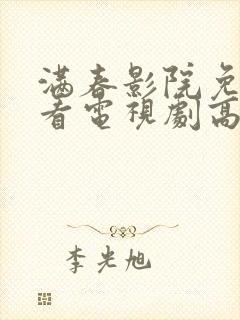 满春影院免
看電視劇高
李光旭